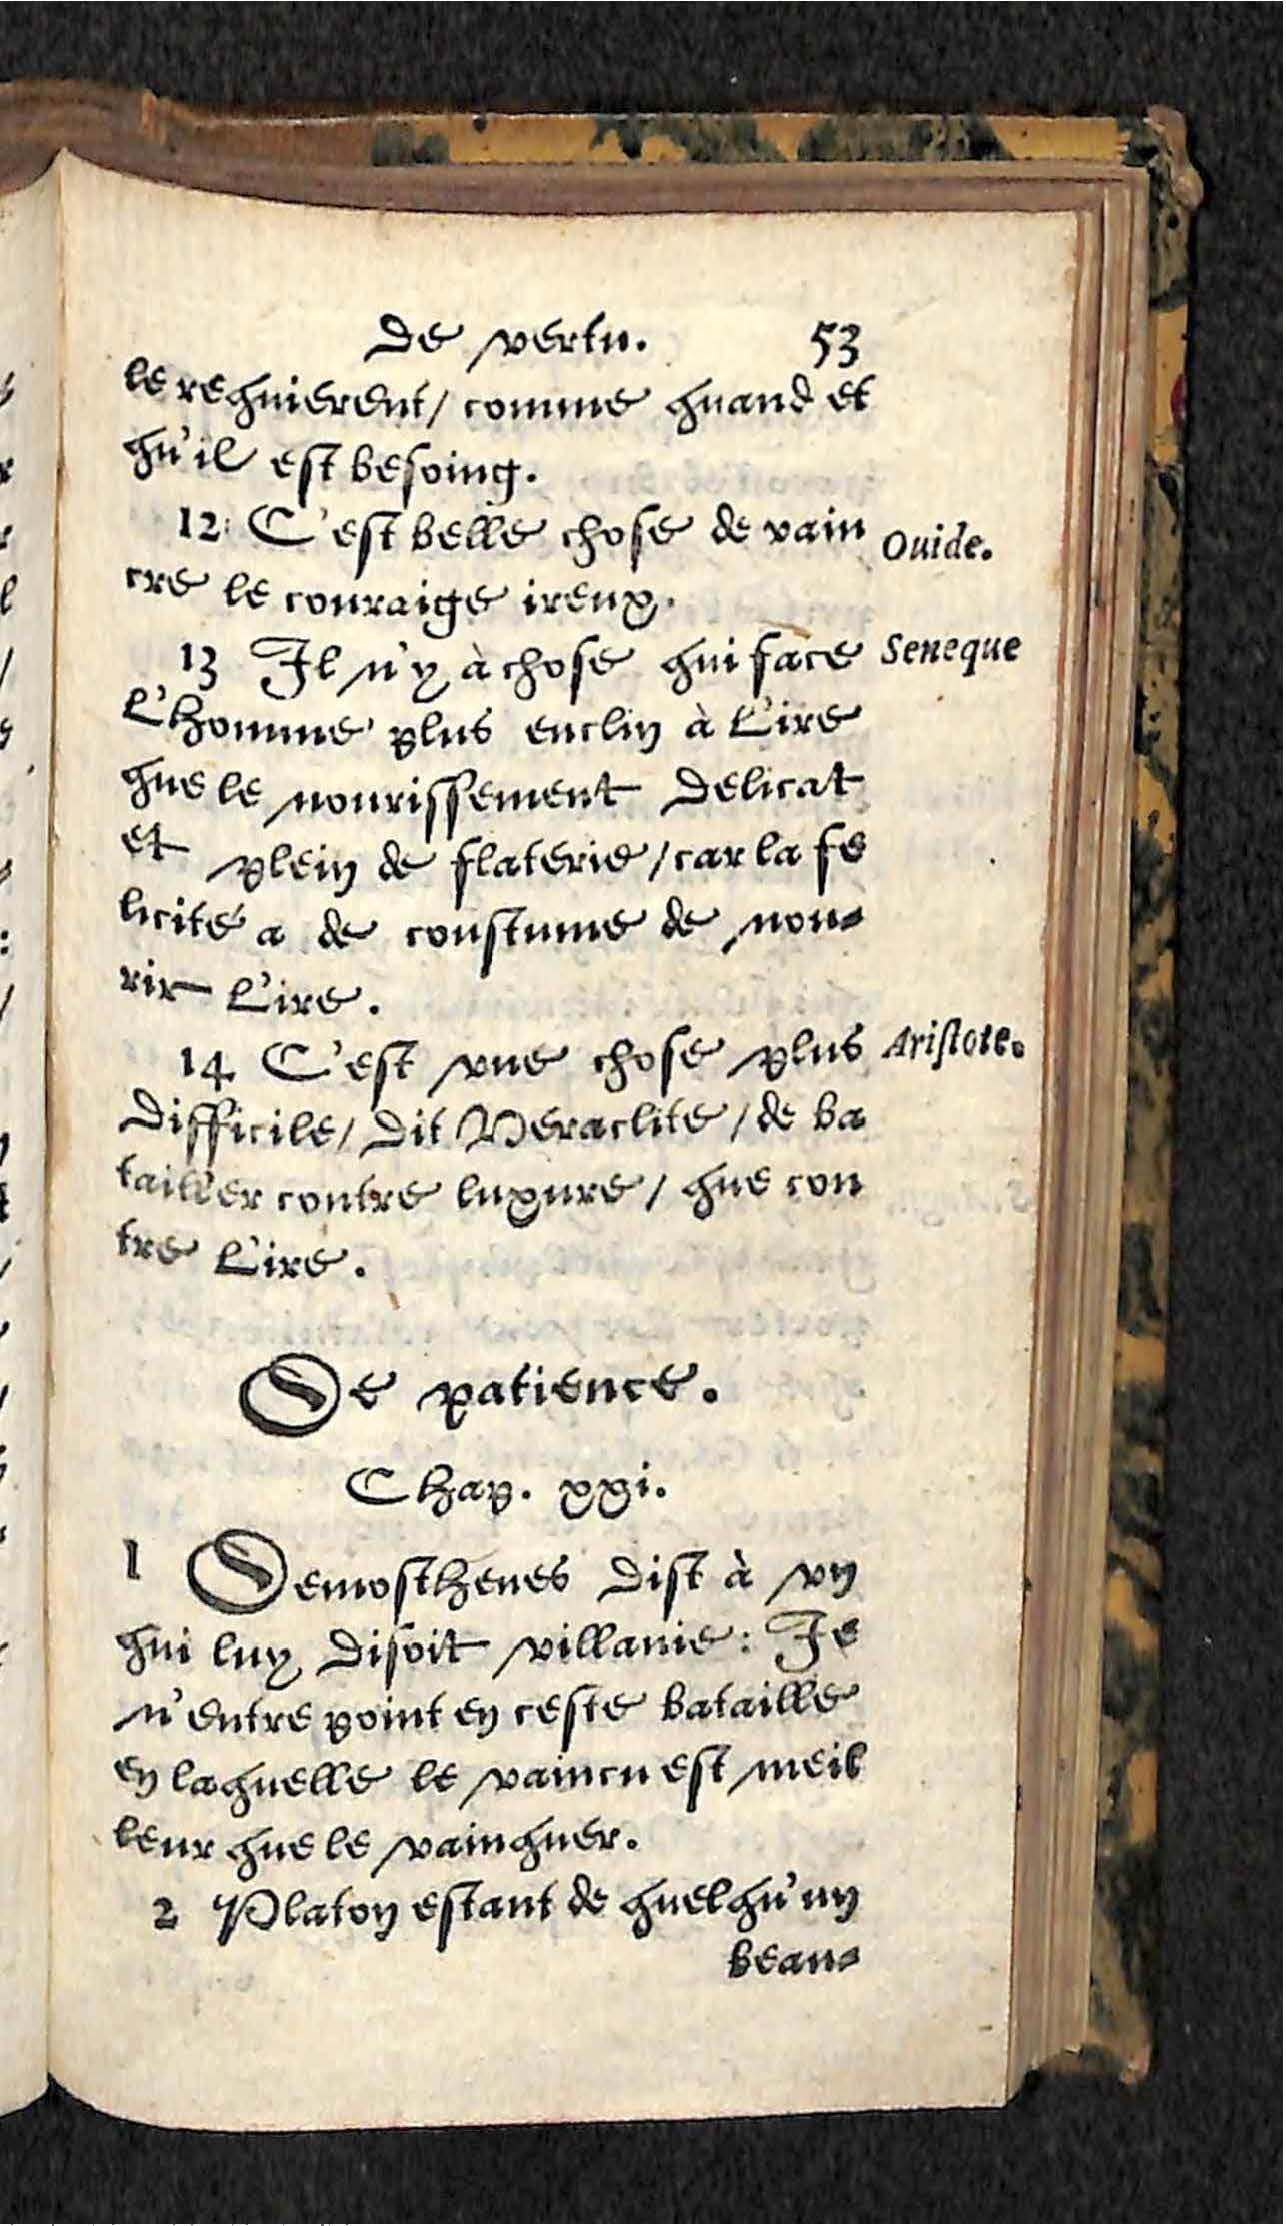 De vertu. 53
le requierent/ comme quand et
qu'il est besoing.
12 C'est belle chose de vain Ouide.
cre le couraige ireux.
13 Il n'y à chose qui face Seneque
l'homme plus enclin à l'ire
que le nourissement delicat
et plein de flaterie/car la fe
licité a de coustume de nou-
rir l'ire.
14 C'est vne chose plus Aristote.
difficile/ dit Heraclite/de ba
tailler contre luxure/ que con
tre l'ire.
De patience.
Chap. xxi.
1 Demosthenes dist à vn
qui luy disoit villanie: Je
n'entre point en ceste bataille
en laquelle le vaincu est meil
leur que le vainquer.
2 Platon estant de quelqu'un
beau-